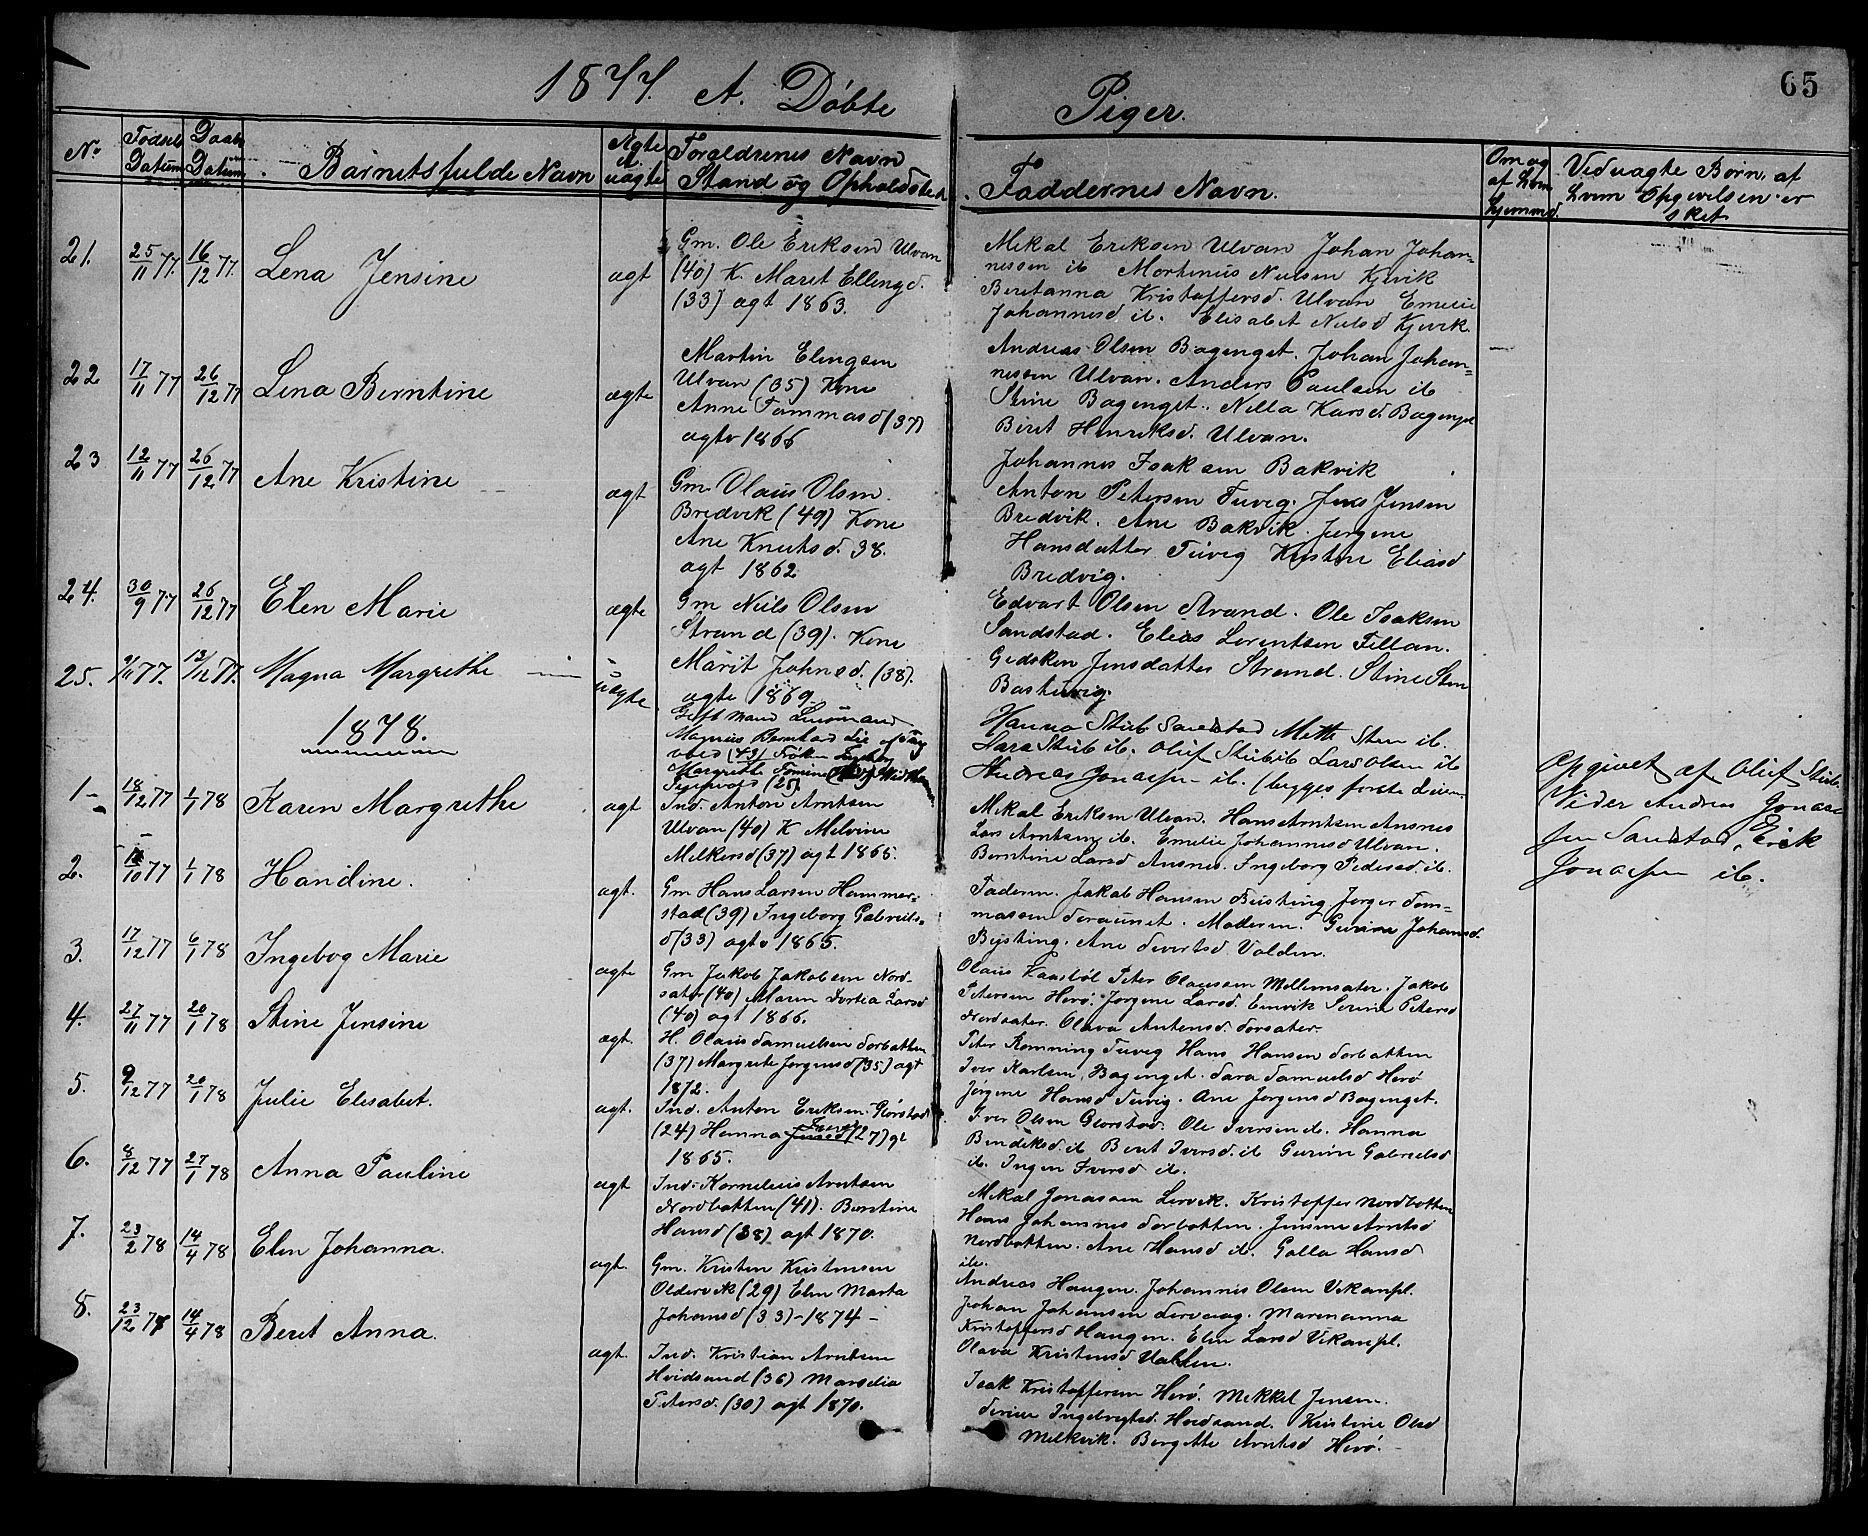 65
1877. A. Døbte Piger.
No. Fødsels Datum Daabs Datum Barnets fulde Navn Ægte el. uægte Forældrenes Navn Stand og Opholdsted Faddernes Navn. Om og af hvem hjemmed. Ved uægte Børn, af hvem Opgivelsen er sket
21. 25/11 77. 16/12 77. Lena Jensine ægt
Gm. Ole Eriksen Ulvan
(40) K. Maret Ellingd.
(33) ægt 1863.
Mikal Eriksen Ulvan Johan Johan=
nessen ib Martinus Nielsen Kjervik
Beretanna Kristoffersd. Ulvan Emelie
Johannesd ib. Elisabet Nielsd Kjervik.
22 17/11 77 26/12 77 Lena Berntine ægte
Martin Elingsen
Ulvan (35) Kone
Anne Tommasd (37)
ægte 1866
Andreas Olsen Bagenget. Johan Johan=
nessen Ulvan. Anders Paulsen ib
Stine Bagenget. Nella Larsd Bagenget
Berit Henriksd. Ulvan.
23 12/11 77 26/12 77 Ane Kristine ægt
Gm. Olaus Olsen.
Bredvik (49) Kone
Ane Knutsd. 38.
ægt 1862
Johannes Isaksen Bakvik
Anton Petersen Tuvig. Jens Jensen
Bredvik. Ane Bakvik Jørgine
Hansdatter Tuvig Kristine Eliasd
Bredvig.
24. 30/9 77 26/12 77 Elen Marie ægte
Gm Niels Olsen
Strand (39). Kone
Marit Johnsd. (38).
ægte 1869
Edvart Olsen Strand. Ole Isaksen
Sandstad. Elias Lorentsen Fillan.
Gidsken Jensdatter Strand. Stine Sten
Bastuvig.
25. 9/11 77. 13/12 77. Magna Margrethe uægte
Gift Mand Lensmand
Magnus Bernhard Lie af
(43) Frøken
Margrethe
(25)
Hanna Stub Sandstad Mette Sten ib.
Sara Stub ib. Oluf Stub ib Lars Olsen ib
Andreas Jonassen ib. (begges første Leier
Opgivet af Oluf Stub.
Vider Andreas Jonas
sen Sandstad, Erik
Jonassen ib.
1878.
1 - 18/12 77 1/1 78 Karen Margrethe ægt
Ind. Anton Arntsen
Ulvan (40) K Melvine
Melkersd (37) ægt 1865.
Mikal Eriksen Ulvan. Hans Arntsen Ansnes
Lars Arntsen ib. Emelie Johannesd Ulvan.
Berntine Larsd Ansnes. Ingeborg Pedersd. ib.
2. /10 77 1/1 78 Handine. ægt.
Gm Hans Larsen Hammer=
stad (39) Ingeborg Gabriels=
d (33) ægte 1865.
Faderen. Jakob Hansen Bøsting Jørger Tom=
massen Moderen. Gurine Johansd.
Bysting. Ane Sivertsd Volden.
3. 17/12 77 6/1 78 Ingebog Marie ægte
Gm Jakob Jakobsen Nord-
sater (40) Maren Dortea Larsd
(40) ægt 1866.
Olaus Kaasbøl Peter Olaussen Mellemsater. Jakob
Petersen Herø. Jørgine Larsd. Serine Petersd
Nordsater. Olava Antensd. Sorsater.
4. 27/11 77 20/1 78 Stine Jensine ægt.
H. Olaus Samuelsen Sorbotten
(37) Margrete Jørgensd (35) ægt
1872.
Peter Ramning Tuvig Hans Hansen Sorbotten
Iver Karlsen, Bagenget. Sara Samuelsd Herø
Jørgine Hansd Tuvig. Ane Jørgensd Bagenget.
5. 9/12 77 20/1 78 Julie Elesabet. ægt.
Ind. Anton Eriksen Glørstad
(24) Hanna Iversd (27) gt
1865.
Iver Olsen Glørstad. Ole Iversen ib. Hanna
Bendiksd. ib Berit Iversd. ib Gurine Gabrielsd
ib. Inger Iversd ib.
6. 8/12 77 27/1 78 Anna Pauline ægt
Ind. Kornelius Arntsen
Nordbotten (41). Berntine
Hansd (38) ægt 1870.
Mikal Jonassen Lervik. Kristoffer Nordbotten
Hans Johannes Sorbotten. Jensine Arntsd
Nordbotten. Ane Hansd ib. Golla Hansd
ib.
7. 23/2 78 14/4 78 Elen Johanna. ægt.
Gm. Kristen Kristensen
Oldervik (29) Elen Marta
Johansd (33) - 1874 -
Andreas Haugen. Johannes Olsen Vikanpl.
Johan Johansen Servaag. Marenanna
Kristoffersd Haugen. Elen Larsd Vikanpl.
Olava Kristensd Valslen.
8. 23/12 77 14/4 78 Berit Anna. ægt.
Ind. Kristian Arntsen
Hvidsand (36) Marselia
Petersd. (30) ægt 1870.
Isak Kristoffersen Herø. Mekkel Jensen
Serine Ingebrigtsd. Hvidsand. Kristine Olsd
Melkvik. Bergitte Arntsd Herø.